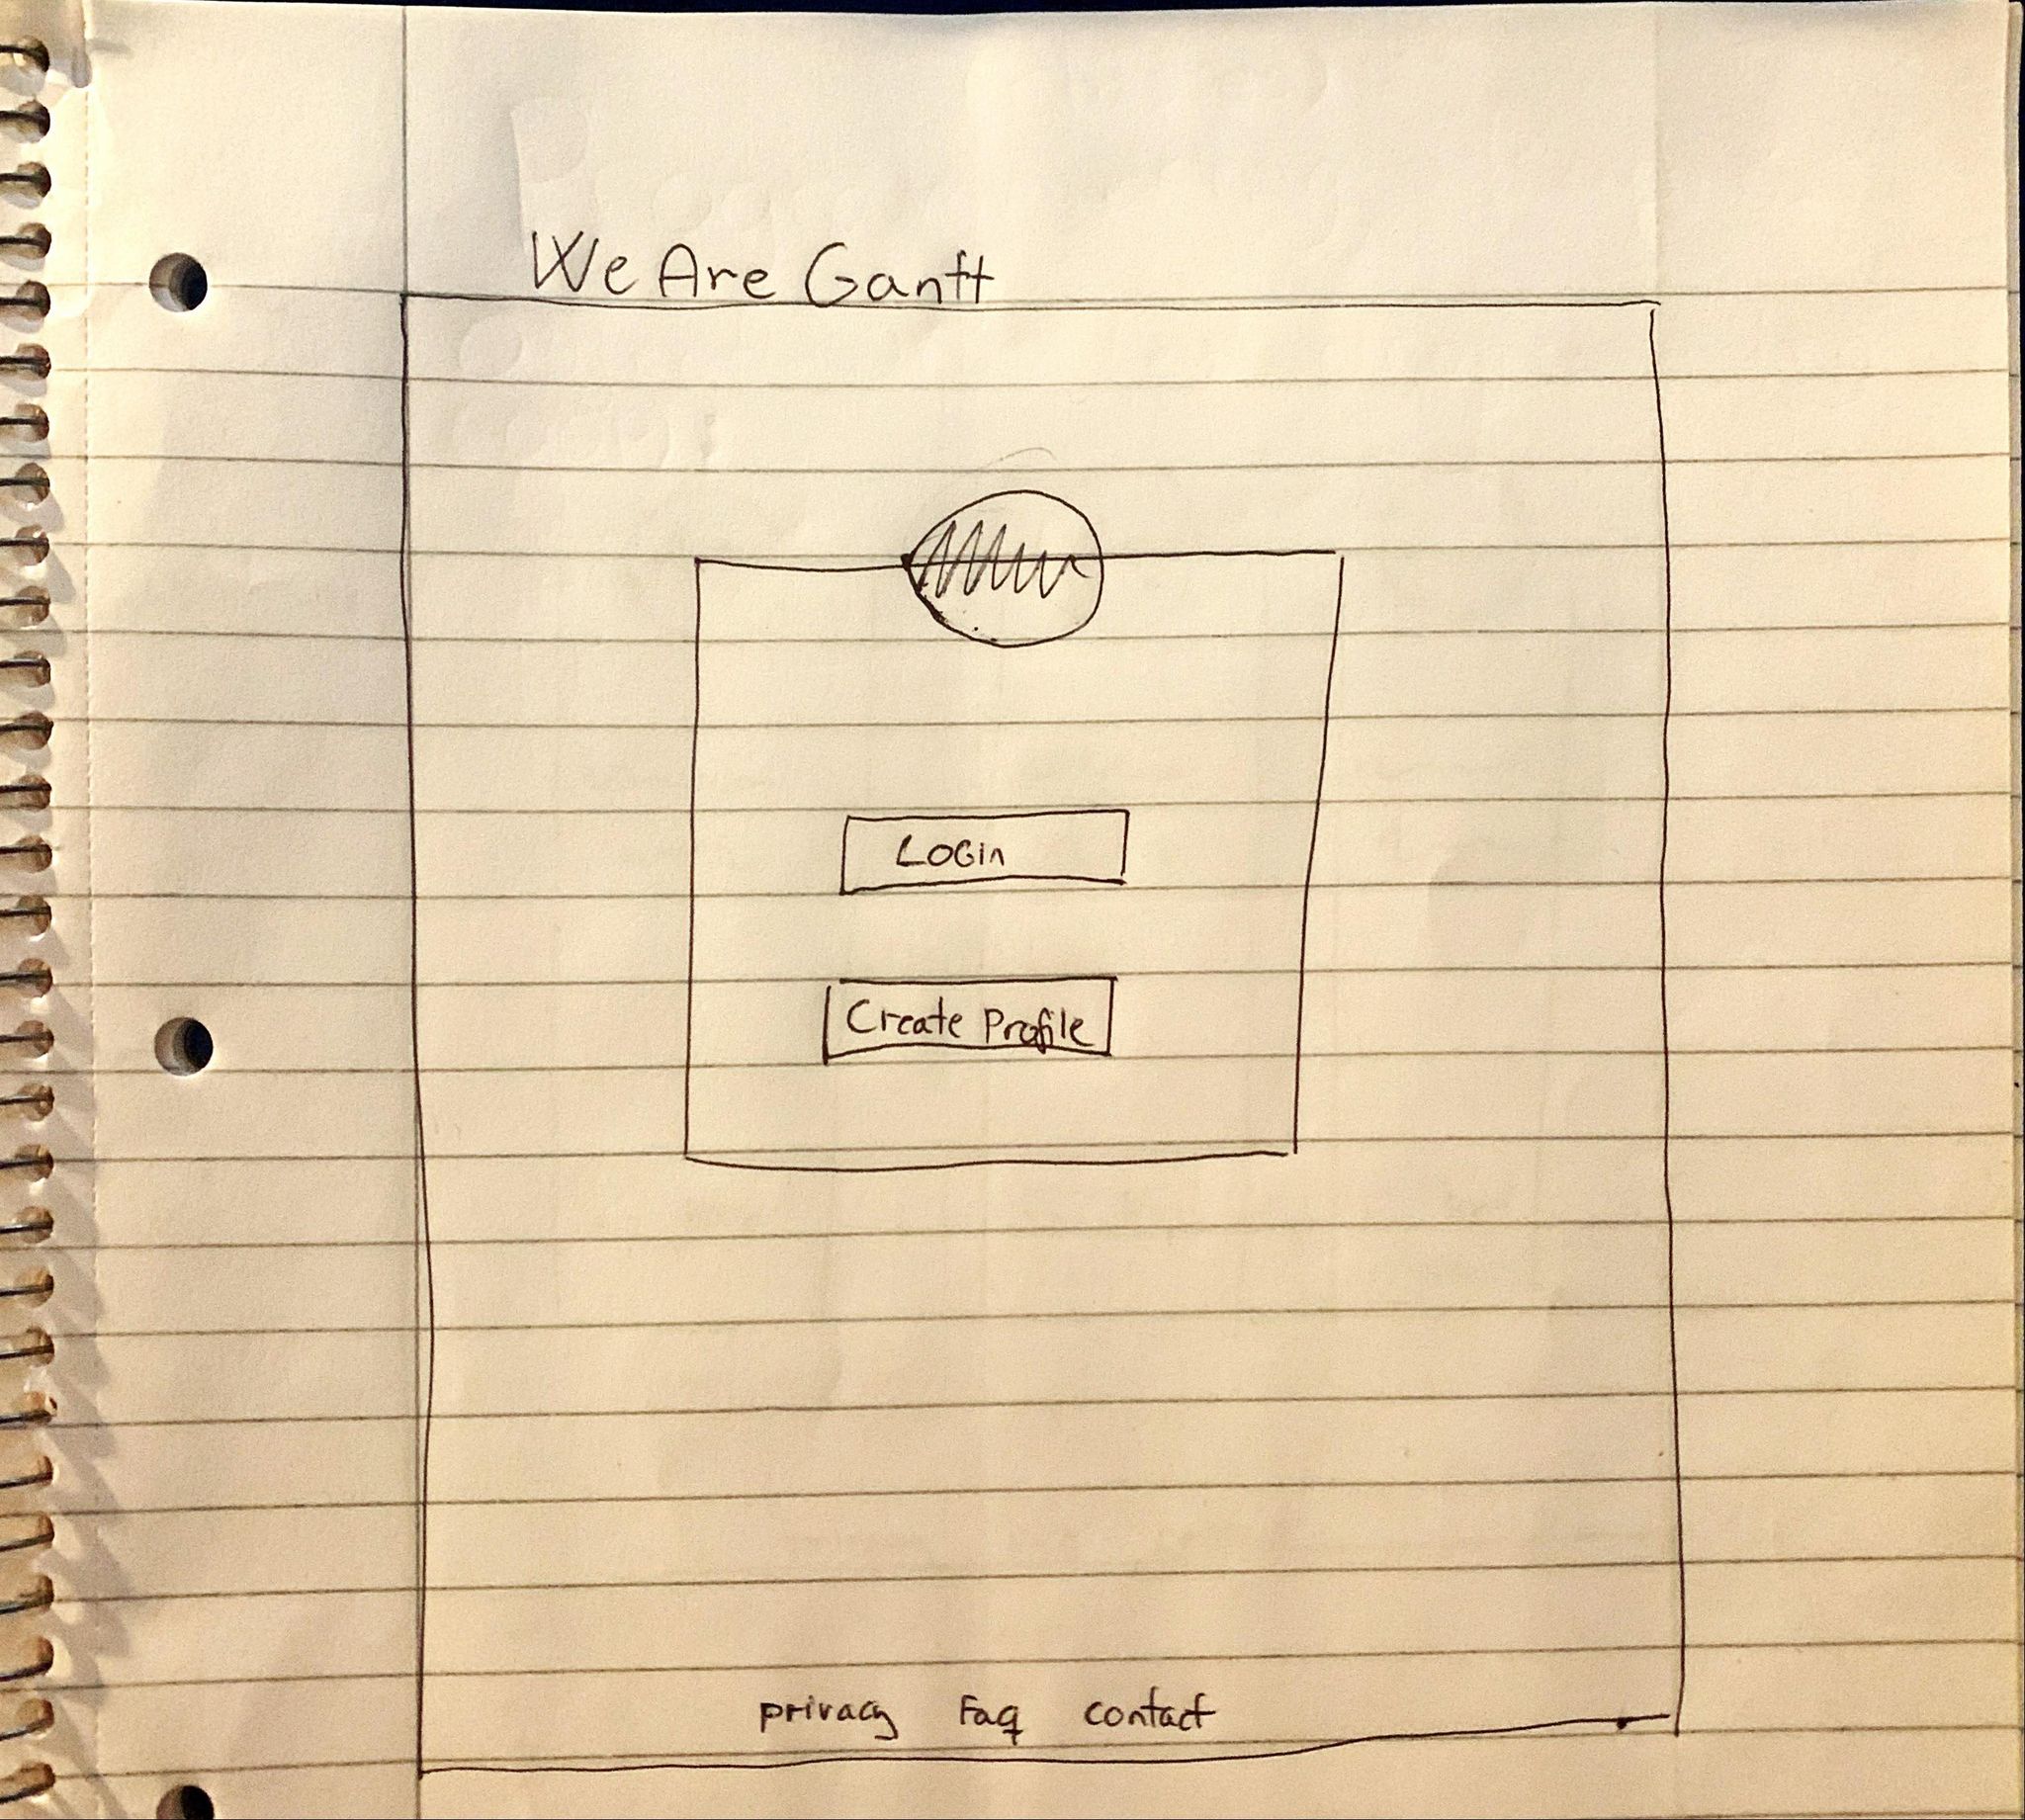 We Are Gantt
Login
Create Profile
privacy Faq contact